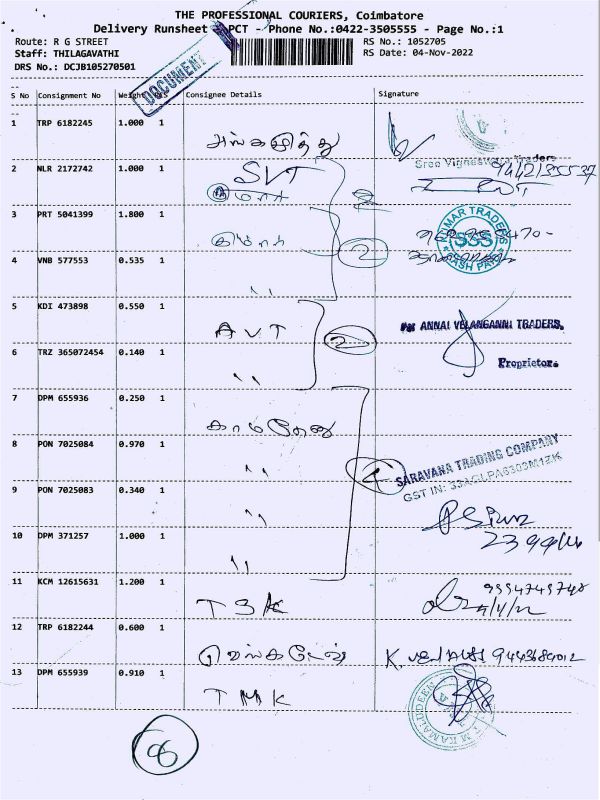 THE PROFESSIONAL COURIERS, Coimbatore
Delivery Runsheet - PCT - Phone No.:0422-3505555 - Page No.:1
Route: R G STREET
RS No.: 1052705
Staff: THILAGAVATHI
RS Date: 04-Nov-2022
DRS No.: DCJB105270501
DOCUMENT
S No Consignment No Weight Pcs Consignee Details Signature
1 TRP 6182245 1.000 1
Sree Vigneswara Traders
2 NLR 2172742 1.000 1 SVT
3 PRT 5041399 1.800 1 குமரன்
KUMAR TRADERS
SSS
CASH PAID
2
4 VNB 577553 0.535 1 ,,
5 KDI 473898 0.550 1 AVT
For ANNAI VELANGANNI TRADERS.
2
6 TRZ 365072454 0.140 1 ,,
Proprietor.
7 DPM 655936 0.250 1 காமதேனு
8 PON 7025084 0.970 1 ,,
4
SARAVANA TRADING COMPANY
9 PON 7025083 0.340 1 ,,
10 DPM 371257 1.000 1 ,,
11 KCM 12615631 1.200 1 TSK
12 TRP 6182244 0.600 1
13 DPM 655939 0.910 1 TMK